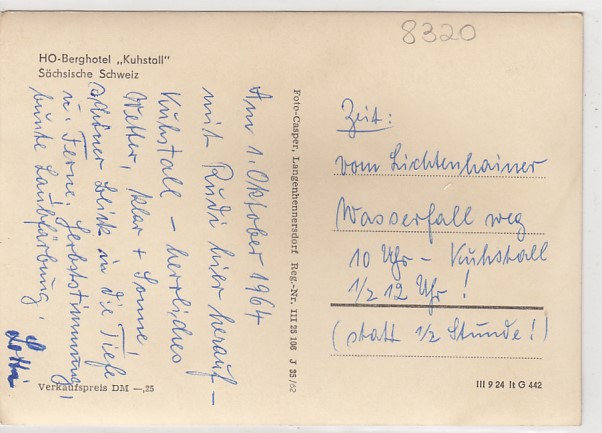 8320
HO-Berghotel „Kuhstall"
Sächsische Schweiz
Am 1. Oktober 1964
mit Rudi hier herauf –
Kuhstall – herrliches
Wetter, klar + Sonne!
schöner Blick in die Tiefe
u. Ferne, Herbststimmung,
bunte Laubfärbung.
Lotti
Verkaufspreis DM —,25
Foto-Casper, Langenhennersdorf Reg.-Nr. III 28 106 J 35/62
Zeit:
vom Lichtenhainer
Wasserfall weg
10 Uhr – Kuhstall
1/2 12 Uhr!
(statt 1/2 Stunde!)
III 9 24 It G 442